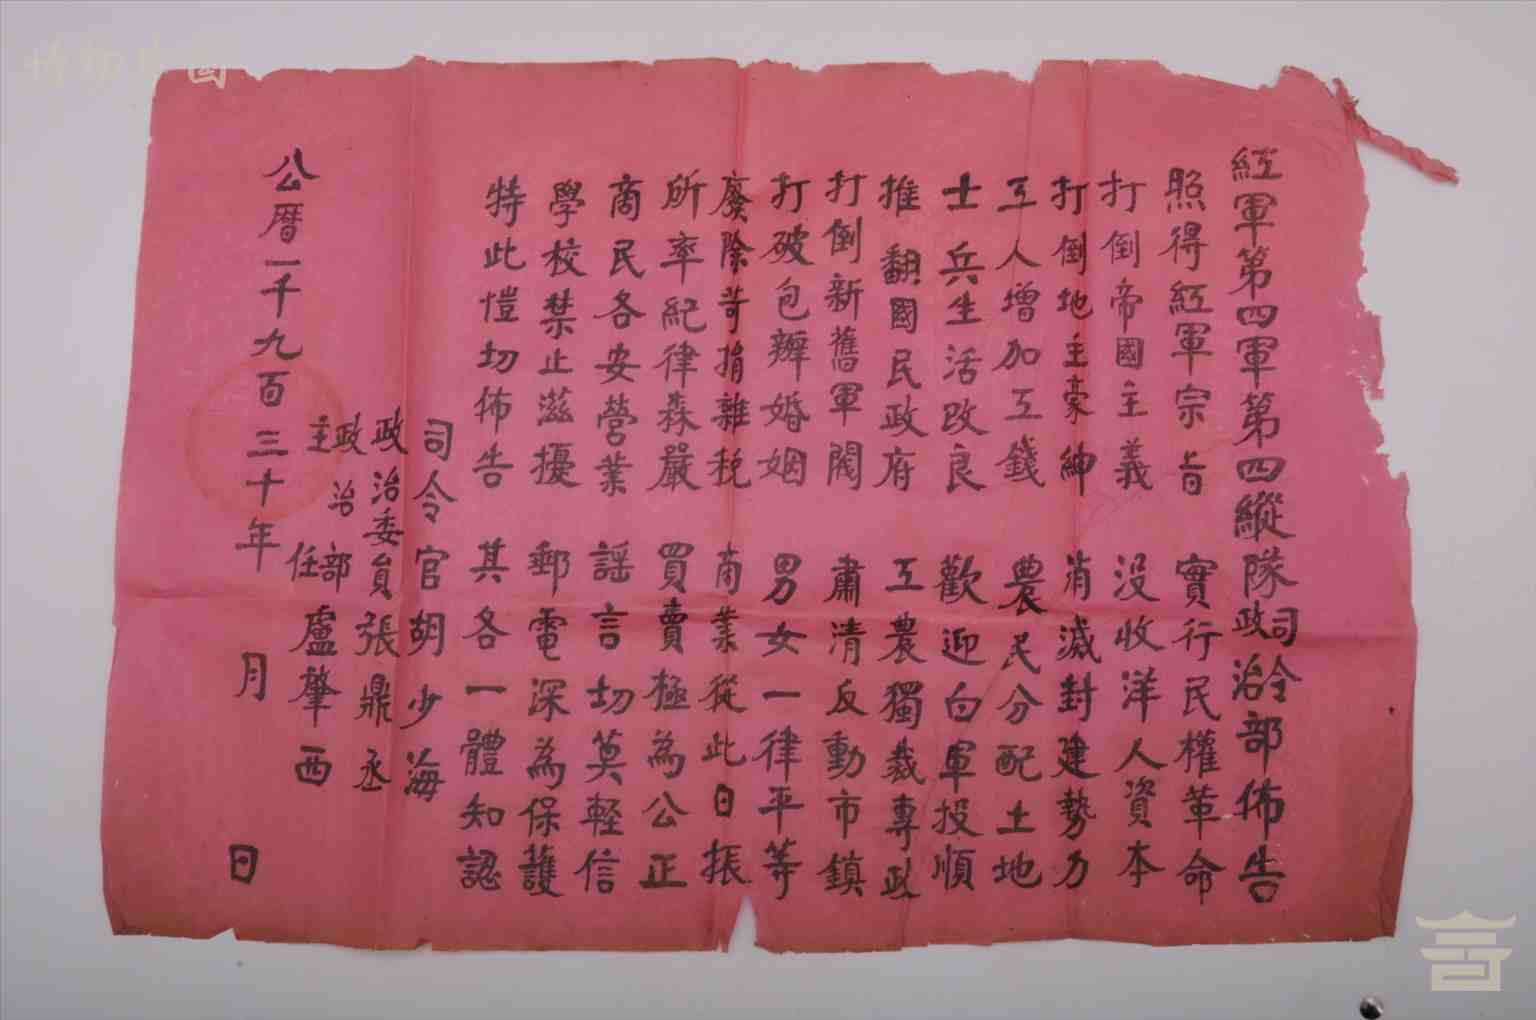 紅軍第四軍第四縱隊司令政治部佈告
照得紅軍宗旨 實行民權革命
打倒帝國主義 没收洋人資本
打倒地主豪紳 消滅封建勢力
工人增加工錢 農民分配土地
士兵生活改良 歡迎白軍投順
推翻國民政府 工農獨裁專政
打倒新舊軍閥 肅清反動市鎮
打破包辦婚姻 男女一律平等
廢除苛捐雜稅 商業從此日振
所率紀律森嚴 買賣極為公正
商民各安營業 謡言切莫輕信
學校禁止滋擾 郵電深為保護
特此愷切佈告 其各一體知認
司令官胡少海
政治委員張鼎丞
政治部主任盧肇西
公曆一千九百三十年 月 日
博物中國